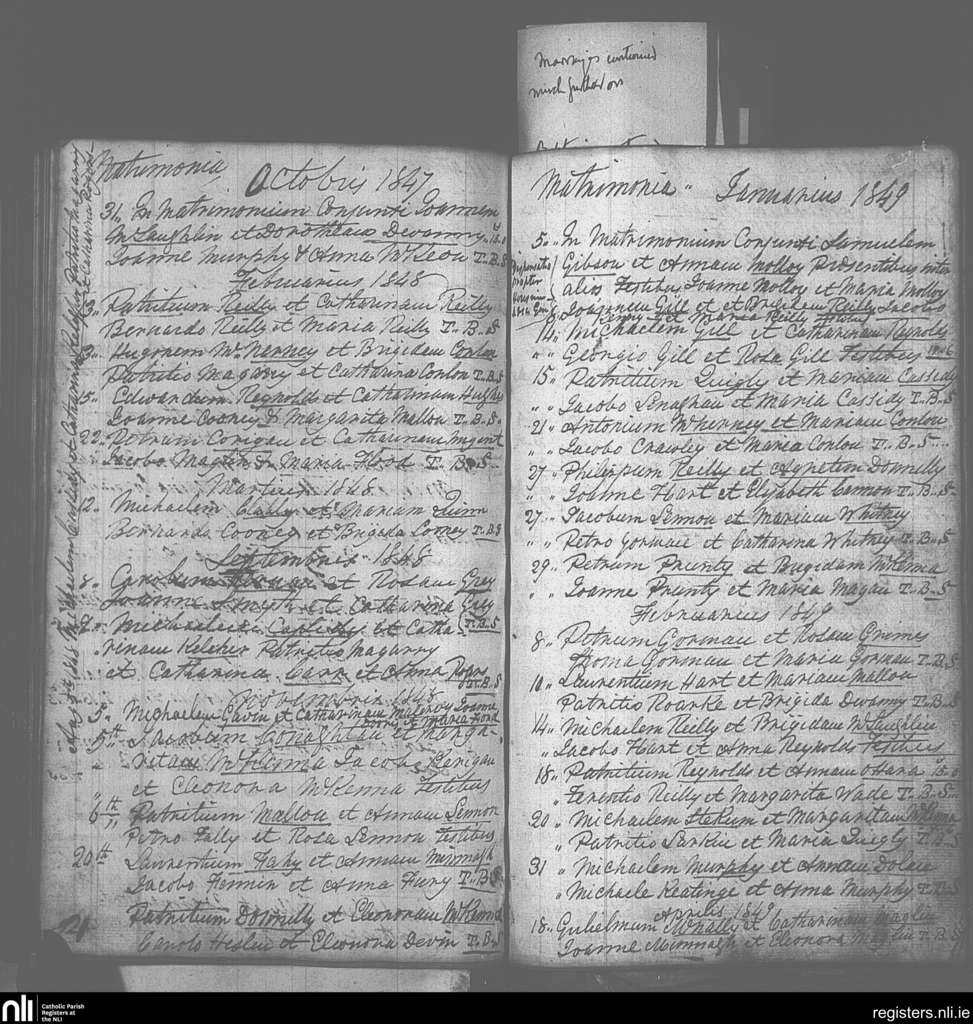 Marriages continued
much further on
Matrimonia
Octobris 1847
31 " In Matrimonium Conjunxi Joannem
McLaughlin et Dorotheam Devanny
Joanne Murphy & Anna McLeon T. B. S
Februarius 1848
Patritium Reilly et Catharinam Reilly
Bernardo Reilly et Maria Reilly T. B. S
Hugonem McNanney et Brigidam Conlon
Patritio Magarry et Catharina Conlon T. B. S
15 " Edwardum Reynolds et Catharinam Hughes
Joanne Cooney & Margarita Mallon T. B. S.
22 " Petrum Corigan et Catharinam Nugent
Jacobo Maglin & Maria Flood T. B. S
Martius 1848
12 " Michaelem Lally et Mariam Quinn
Bernardo Cooney et Brigida Cooney T. B. S
Septembris 1848
8 " et Rosam Grey
Joanne Smyth et Catharina Grey
9 " Michaelem et Catha- T. B. S
rinam Keleher Patritio Magarry
et Catharina Carr et Anna Rogers
T. B. S
Novembris 1848
5 " Michaelem Gavin et Catharinam Joanne
et Maria Ford
5th Jacobum Conaghtan et Marga-
ritam McKenna Jacobo Kerigan
et Eleonora McKenna Testibus
6th Patritium Mallon et Annam Lennon
Petro Fally et Rosa Lennon Testibus
20th Laurentium Fahy et Annam Mimnagh
Jacobo Fermin et Anna Fury T. B. S
21 Patritium Donnelly et Eleonoram McKenna
Carolo Heslin et Eleonora Devin T. B. S
Matrimonia " Januarius 1849
5 " In Matrimonium Conjunxi Samuelem
Gibson et Annam Molloy Presentibus inter
alios Testibus Joanne Molloy et Maria Molloy
Dispensatis
propter
Joannem Gill et Brigidam Reilly Jacobo
Maria Reilly
14 " Michaelem Gill et Catharinam Reynolds
" " Georgio Gill et Rosa Gill Testibus
15 " Patritium Quigly et Mariam Cassidy
" " Jacobo Lenaghan et Maria Cassidy T. B. S
21 " Antonium McKenney et Mariam Conlon
" " Jacobo Crawley et Maria Conlon T. B. S
27 " Philippum Reilly et Agnetem Donnelly
" " Joanne Hart et Elizabeth Cannon T. B. S
27 " Jacobum Lennon et Mariam Whitney
" " Petro Gorman et Catharina Whitney T. B. S
29 " Petrum Prunty et Brigidam McKenna
" " Joanne Prunty et Maria Magan T. B. S
Februarius 1849
8 " Petrum Gorman et Rosam Grimes
Thoma Gorman et Maria Gorman T. B. S
10 " Laurentium Hart et Mariam Mallon
Patritio Roarke et Brigida Devanny T. B. S
14 " Michaelem Reilly et Brigidam McLaughlin
" Jacobo Hart et Anna Reynolds Testibus
18 " Patritium Reynolds et Annam OHara
" Terentio Reilly et Margarita Wade T. B. S
20 " Michaelem Slekum et Margaritam McKenna
" Patritio Larkin et Maria Quigly T. B. S
31 " Michaelem Murphy et Annam Dolan
" Michaele Keatinge et Anna Murphy T. B. S
Aprilis 1849
18 " Gulielmum Whally et Catharinam Maglin
Joanne Mimnagh et Eleonora Maglin T. B. S
nli
Catholic Parish
Registers at
the NLI
registers.nli.ie